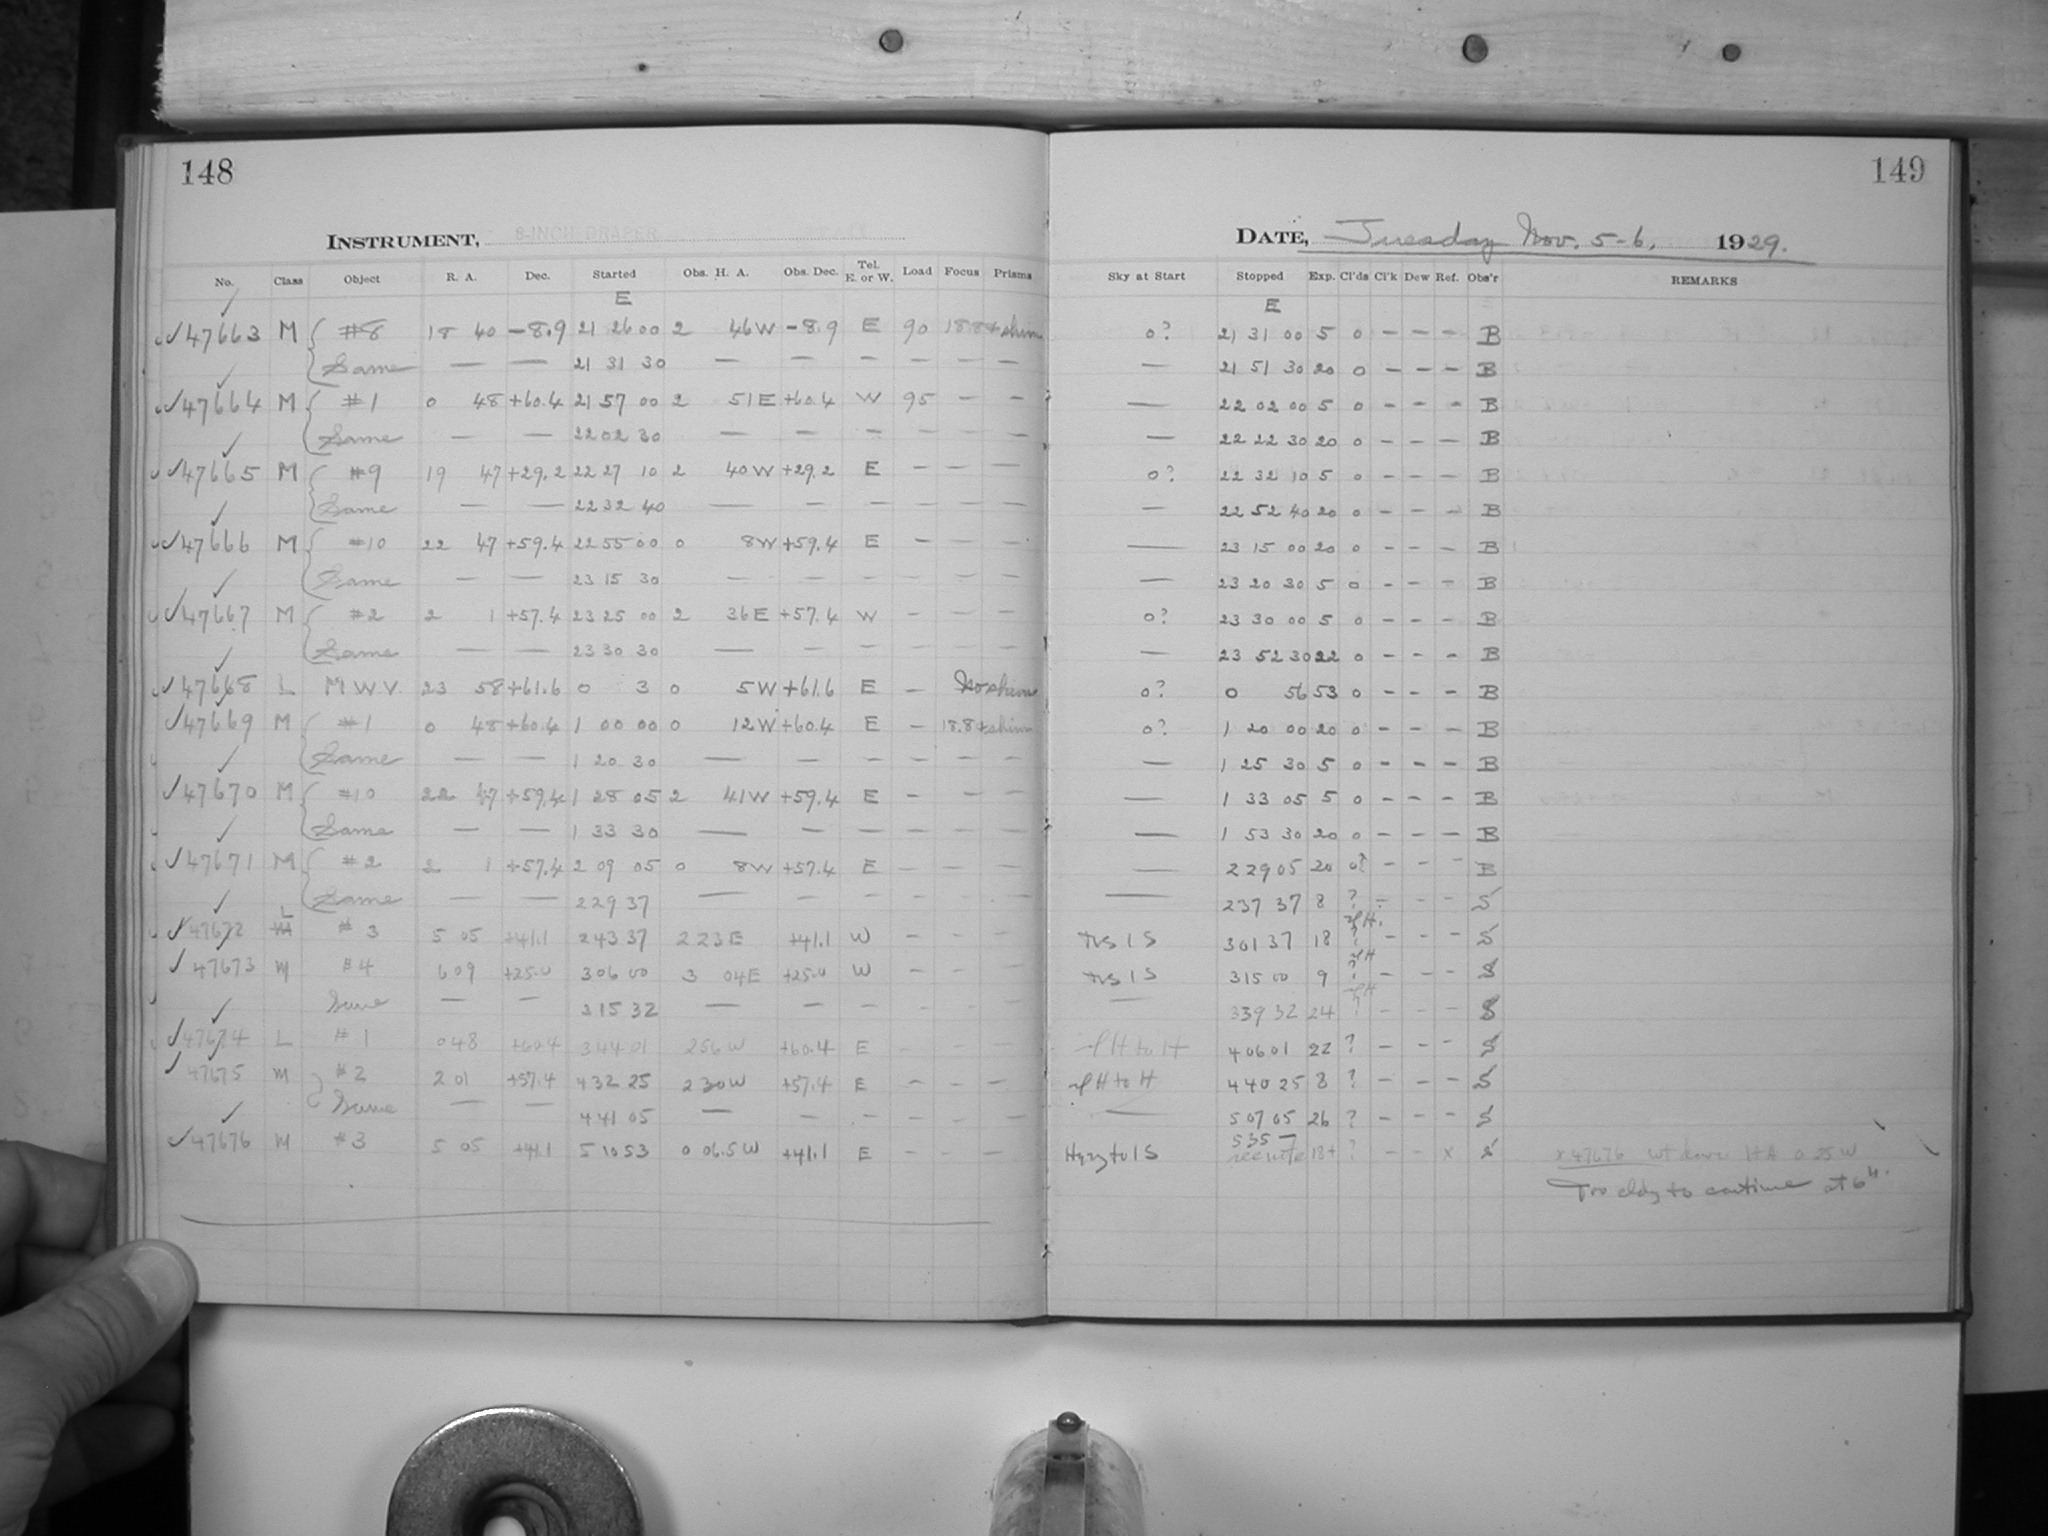 148
149
INSTRUMENT, 8-INCH DRAPER
DATE, Tuesday Nov. 5-6, 1929.
No. Class Object R. A. Dec. Started Obs. H. A. Obs. Dec. Tel. E. or W. Load Focus Prisms Sky at Start Stopped Exp. Cl'ds Cl'k Dew Ref. Obs'r REMARKS
E E
47663 M #8 18 40 -8.9 21 26 00 2 46W -8.9 E 90 18.8+shim 0? 21 31 00 5 0 - - - B
Same — — 21 31 30 — — — — — — — 21 51 30 20 0 - - - B
47664 M #1 0 48 +60.4 21 57 00 2 51E +60.4 W 95 - - — 22 02 00 5 0 - - - B
Same — — 22 02 30 — — — — — — — 22 22 30 20 0 - - - B
47665 M #9 19 47 +29.2 22 27 10 2 40W +29.2 E - - - 0? 22 32 10 5 0 - - - B
Same — — 22 32 40 — — — — — — — 22 52 40 20 0 - - - B
47666 M #10 22 47 +59.4 22 55 00 0 8W +59.4 E - - - — 23 15 00 20 0 - - - B
Same — — 23 15 30 — — — — — — — 23 20 30 5 0 - - - B
47667 M #2 2 1 +57.4 23 25 00 2 36E +57.4 W - - - 0? 23 30 00 5 0 - - - B
Same — — 23 30 30 — — — — — — — 23 52 30 22 0 - - - B
47668 L M W V. 23 58 +61.6 0 3 0 5W +61.6 E - No shim 0? 0 56 53 0 - - - B
47669 M #1 0 48 +60.4 1 00 00 0 12W +60.4 E - 18.8+shim 0? 1 20 00 20 0 - - - B
Same — — 1 20 30 — — — — — — — 1 25 30 5 0 - - - B
47670 M #10 22 47 +59.4 1 28 05 2 41W +59.4 E - - - — 1 33 05 5 0 - - - B
Same — — 1 33 30 — — — — — — — 1 53 30 20 0 - - - B
47671 M #2 2 1 +57.4 2 09 05 0 8W +57.4 E - - - — 2 29 05 20 0? - - - B
Same — — 2 29 37 — — — — — — — 2 37 37 8 ? - - - S
47672 L #3 5 05 +41.1 2 43 37 2 23E +41.1 W - - - 1 S 3 01 37 18 ? - - - S
47673 M #4 6 09 +25.0 3 06 00 3 04E +25.0 W - - - 1 S 3 15 00 9 ? - - - S
Same — — 3 15 32 — — — — — — — 3 39 32 24 ? - - - S
47674 L #1 0 48 +60.4 3 44 01 2 56W +60.4 E - - - H to H 4 06 01 22 ? - - - S
47675 M #2 2 01 +57.4 4 32 25 2 30W +57.4 E - - - H to H 4 40 25 8 ? - - - S
Same — — 4 41 05 — — — — — — — 5 07 05 26 ? - - - S
47676 M #3 5 05 +41.1 5 10 53 0 06.5W +41.1 E - - - Hazy to 1S 5 35 — see note 18+ ? - - x S x 47676 Wt down HA 0 25 W
Too cldy to continue at 6h.